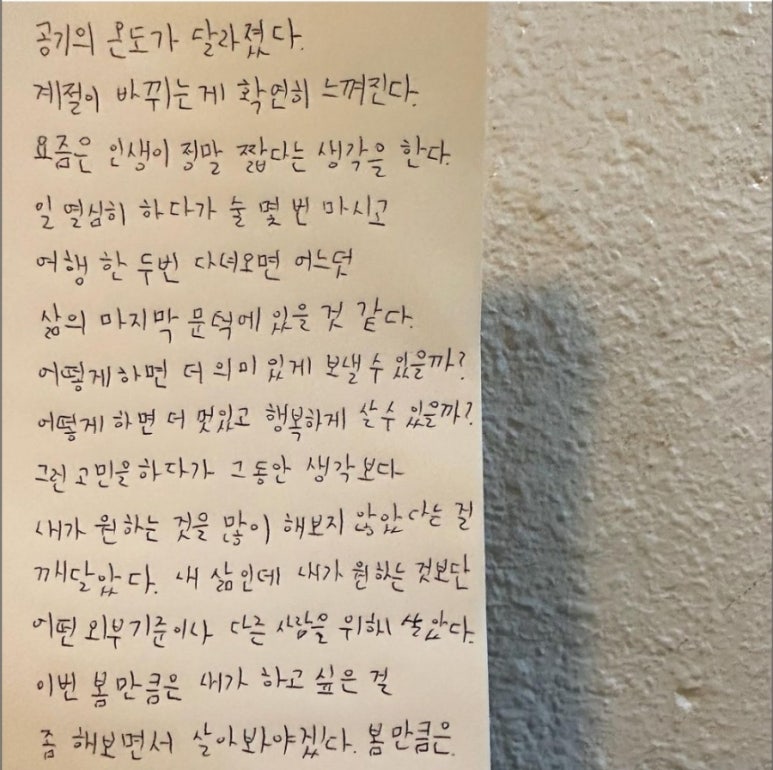 공기의 온도가 달라졌다.
계절이 바뀌는게 확연히 느껴진다.
요즘은 인생이 정말 짧다는 생각을 한다.
일 열심히 하다가 술 몇 번 마시고
여행 한 두번 다녀오면 어느덧
삶의 마지막 문턱에 있을 것 같다.
어떻게하면 더 의미 있게 보낼 수 있을까?
어떻게 하면 더 멋있고 행복하게 살 수 있을까?
그런 고민을 하다가 그동안 생각보다
내가 원하는 것을 많이 해보지 않았다는 걸
깨달았다. 내 삶인데 내가 원하는 것보단
어떤 외부기준이나 다른 사람을 위해 살았다.
이번 봄만큼은 내가 하고 싶은 걸
좀 해보면서 살아봐야겠다. 봄만큼은.